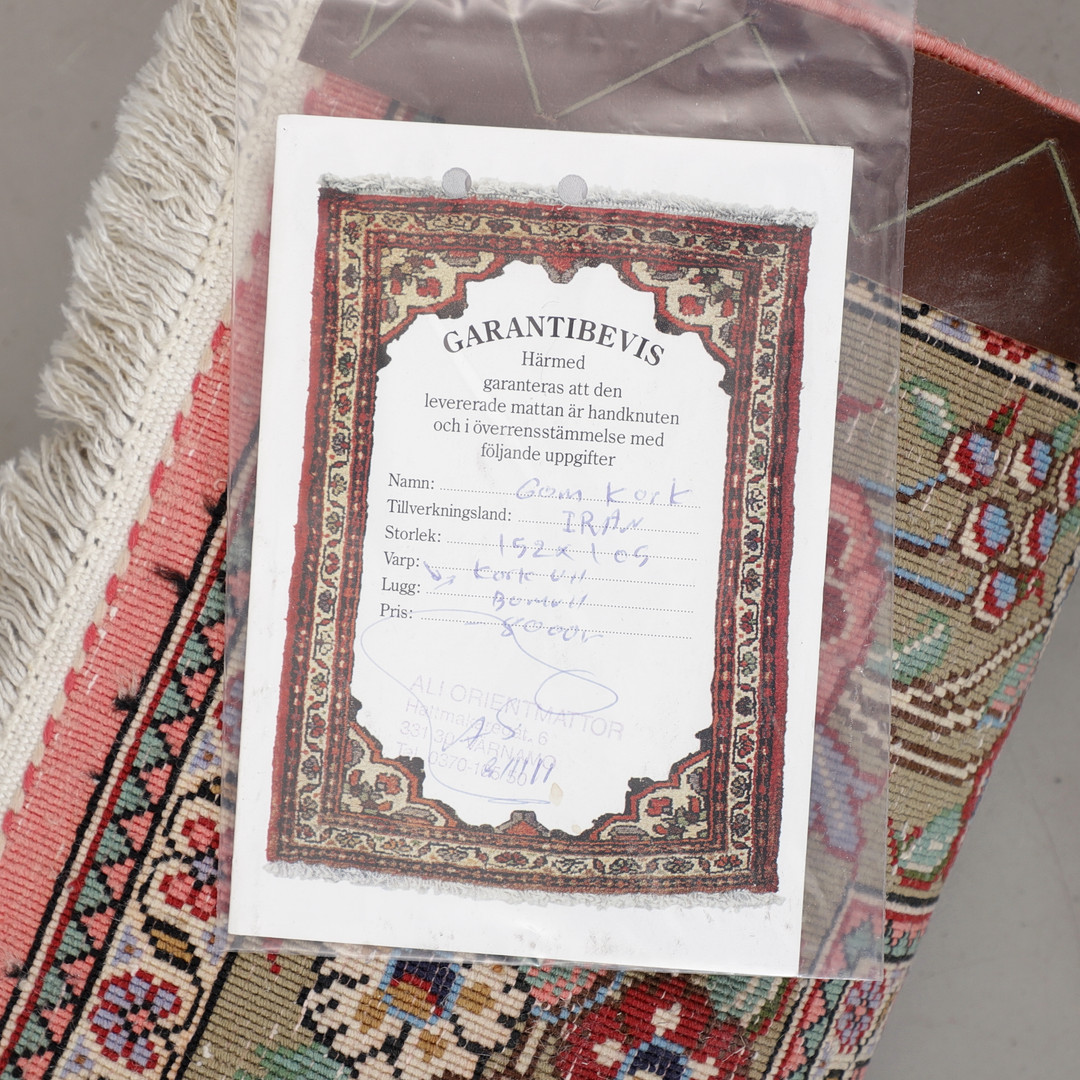 GARANTIBEVIS
Härmed
garanteras att den
levererade mattan är handknuten
och i överrensstämmelse med
följande uppgifter
Namn: Gom Kork
Tillverkningsland: IRAN
Storlek: 152x105
Varp: Kork ull
Lugg: Bomull
Pris: 8000:-
ALI ORIENTMATTOR
6
331 30 VÄRNAMO
Tel. 0370-